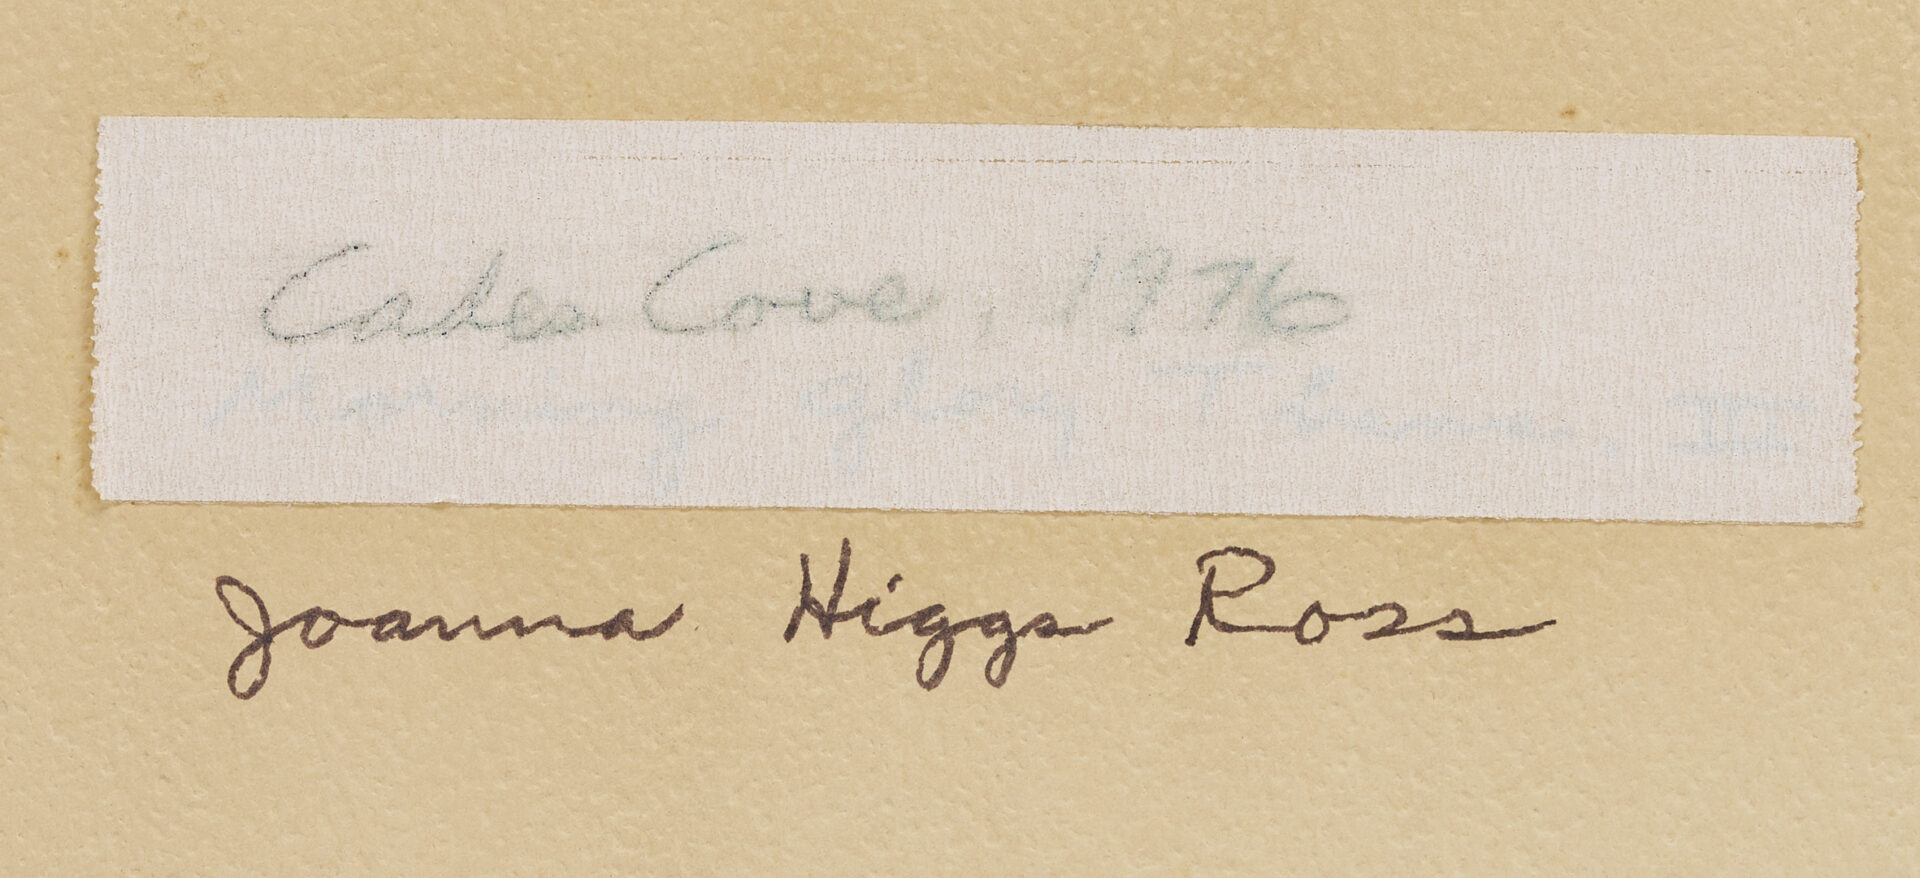 Cades Cove, 1976
Morning Glory Theme, II
Joanna Higgs Ross